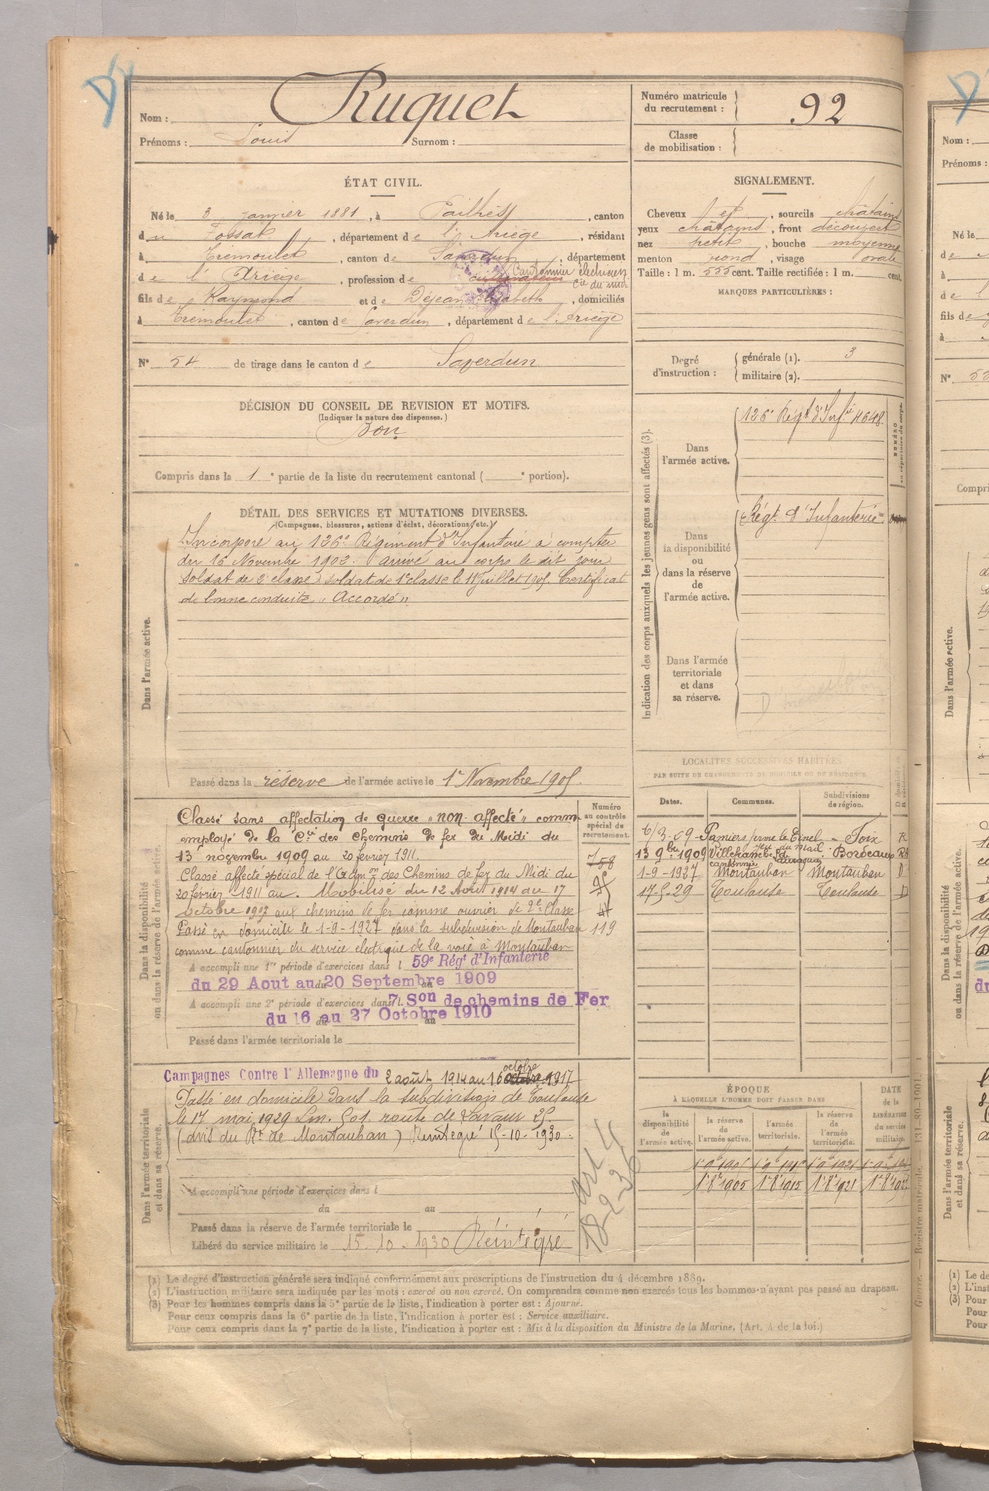 Nom : Ruquet
Prénoms : Louis Surnom :
Numéro matricule du recrutement : 92
Classe de mobilisation :
ÉTAT CIVIL.
Né le 3 janvier 1881, à Pailhès, canton
du Fossat, département de l'Ariège, résidant
à Trémoulet, canton de Saverdun, département
de l'Ariège, profession de cultivateur Cantonnier
Cie du midi
fils de Raymond et de Déjean Elisabeth, domiciliés
à Trémoulet, canton de Saverdun, département de l'Ariège
N° 54 de tirage dans le canton de Saverdun
SIGNALEMENT.
Cheveux, sourcils châtains
yeux châtains, front découvert
nez petit, bouche moyenne
menton rond, visage ovale
Taille : 1 m. 555 cent. Taille rectifiée : 1 m. cent.
MARQUES PARTICULIÈRES :
Degré d'instruction : générale (1). 3
militaire (2).
DÉCISION DU CONSEIL DE REVISION ET MOTIFS.
(Indiquer la nature des dispenses.)
Bon
Compris dans la 1e partie de la liste du recrutement cantonal ( e portion).
DÉTAIL DES SERVICES ET MUTATIONS DIVERSES.
(Campagnes, blessures, actions d'éclat, décorations, etc.)
Dans l'armée active.
Incorporé au 126e Régiment d'Infanterie à compter
du 16 Novembre 1902. Arrivé au corps le dit jour
Soldat de 2e classe, soldat de 1e classe le 11 juillet 1905 Certificat
de bonne conduite "Accordé"
Passé dans la réserve de l'armée active le 1er Novembre 1905
Indication des corps auxquels les jeunes gens sont affectés (3).
Dans l'armée active.
126e Régt d'Infie
Dans la disponibilité ou dans la réserve de l'armée active.
Régt d'Infanterie
Dans l'armée territoriale et dans sa réserve.
Dans la disponibilité ou dans la réserve de l'armée active.
Classé sans affectation de guerre "non affecté" comme
employé de la Cie des chemins de fer du Midi du
13 novembre 1909 au 20 février 1911.
Classé affecté spécial de l'Adm on des Chemins de fer du Midi du
20 février 1911 au. Mobilisé du 12 Août 1914 au 17
octobre 1917 aux chemins de fer comme ouvrier de 2e classe
Passé en domicile le 1-9-1927 dans la subdivision de Montauban
comme cantonnier du service électrique de la voie à Montauban
A accompli une 1re période d'exercices dans l 59e Régt d'Infanterie
du 29 Aout au 20 Septembre 1909
A accompli une 2e période d'exercices dans l 7. Son de chemins de Fer
du 16 au 27 Octobre 1910
Passé dans l'armée territoriale le
Numéro au contrôle spécial du recrutement.
758
119
LOCALITÉS SUCCESSIVES HABITÉES
PAR SUITE DE CHANGEMENTS DE DOMICILE OU DE RÉSIDENCE.
Dates. Communes. Subdivisions de région.
6/3-09 Pamiers Foix R
13 9bre 1909 Villefranche Bordeaux
1-9-1927 Montauban Montauban D
17-5-29 Toulouse Toulouse D
Dans l'armée territoriale et dans sa réserve.
Campagnes Contre l'Allemagne du 2 août 1914 au 16 octobre 1917
Passé en domicile dans la subdivision de Toulouse
le 17 mai 1929
(avis du Rt de Montauban) Réintégré 15-10-1930.
A accompli une période d'exercices dans l
du au
Passé dans la réserve de l'armée territoriale le
Libéré du service militaire le 15-10-1930 Réintégré
ÉPOQUE
À LAQUELLE L'HOMME DOIT PASSER DANS
la disponibilité de l'armée active. la réserve de l'armée active. l'armée territoriale. la réserve de l'armée territoriale. DATE de la LIBÉRATION du service militaire.
(1) Le degré d'instruction générale sera indiqué conformément aux prescriptions de l'instruction du 4 décembre 1889.
(2) L'instruction militaire sera indiquée par les mots : exercé ou non exercé. On comprendra comme non exercés tous les hommes n'ayant pas passé au drapeau.
(3) Pour les hommes compris dans la 5e partie de la liste, l'indication à porter est : Ajourné.
Pour ceux compris dans la 6e partie de la liste, l'indication à porter est : Service auxiliaire.
Pour ceux compris dans la 7e partie de la liste, l'indication à porter est : Mis à la disposition du Ministre de la Marine. (Art. 4 de la loi.)